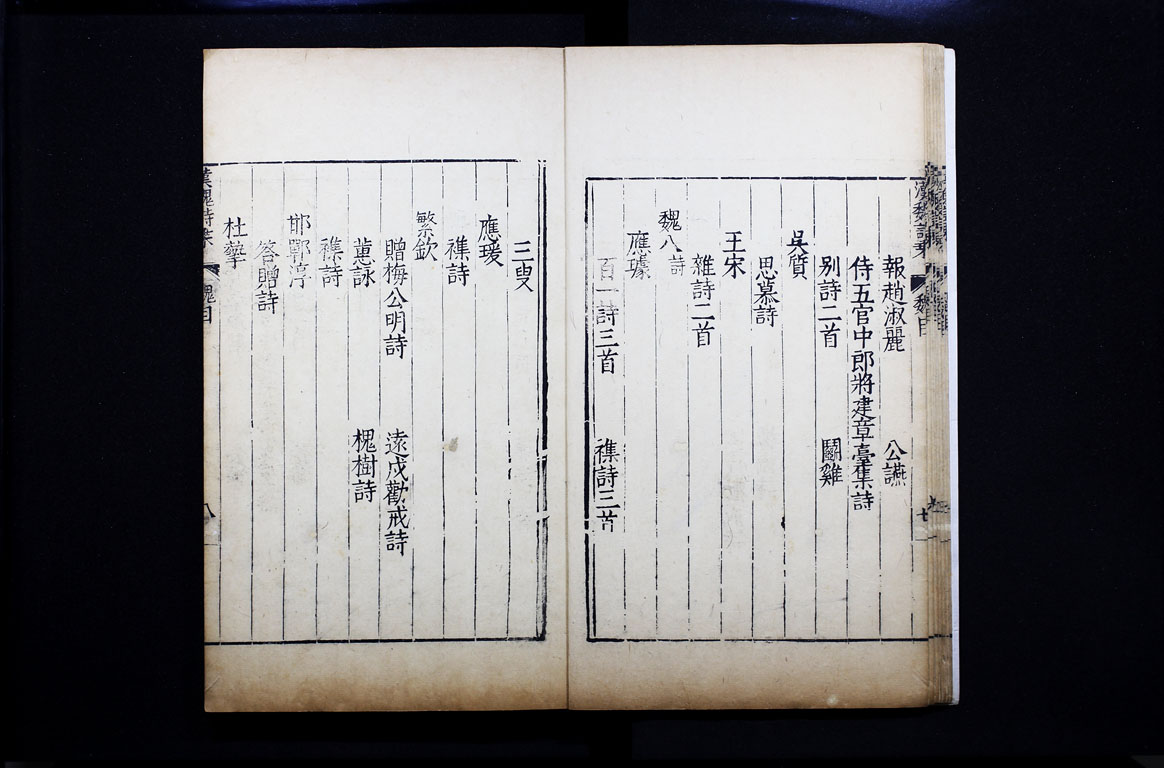 漢魏詩乘 魏目 七
報趙淑麗 公讌
侍五官中郎將建章臺集詩
別詩二首 鬭雞
吳質
思慕詩
王宋
雜詩二首
魏八 詩
應璩
百一詩三首 襍詩三首
三叟
應瑗
襍詩
繁欽
贈梅公明詩 遠戍勸戒詩
蕙詠 槐樹詩
襍詩
邯鄲淳
答贈詩
杜摯
漢魏詩乘 魏目 八